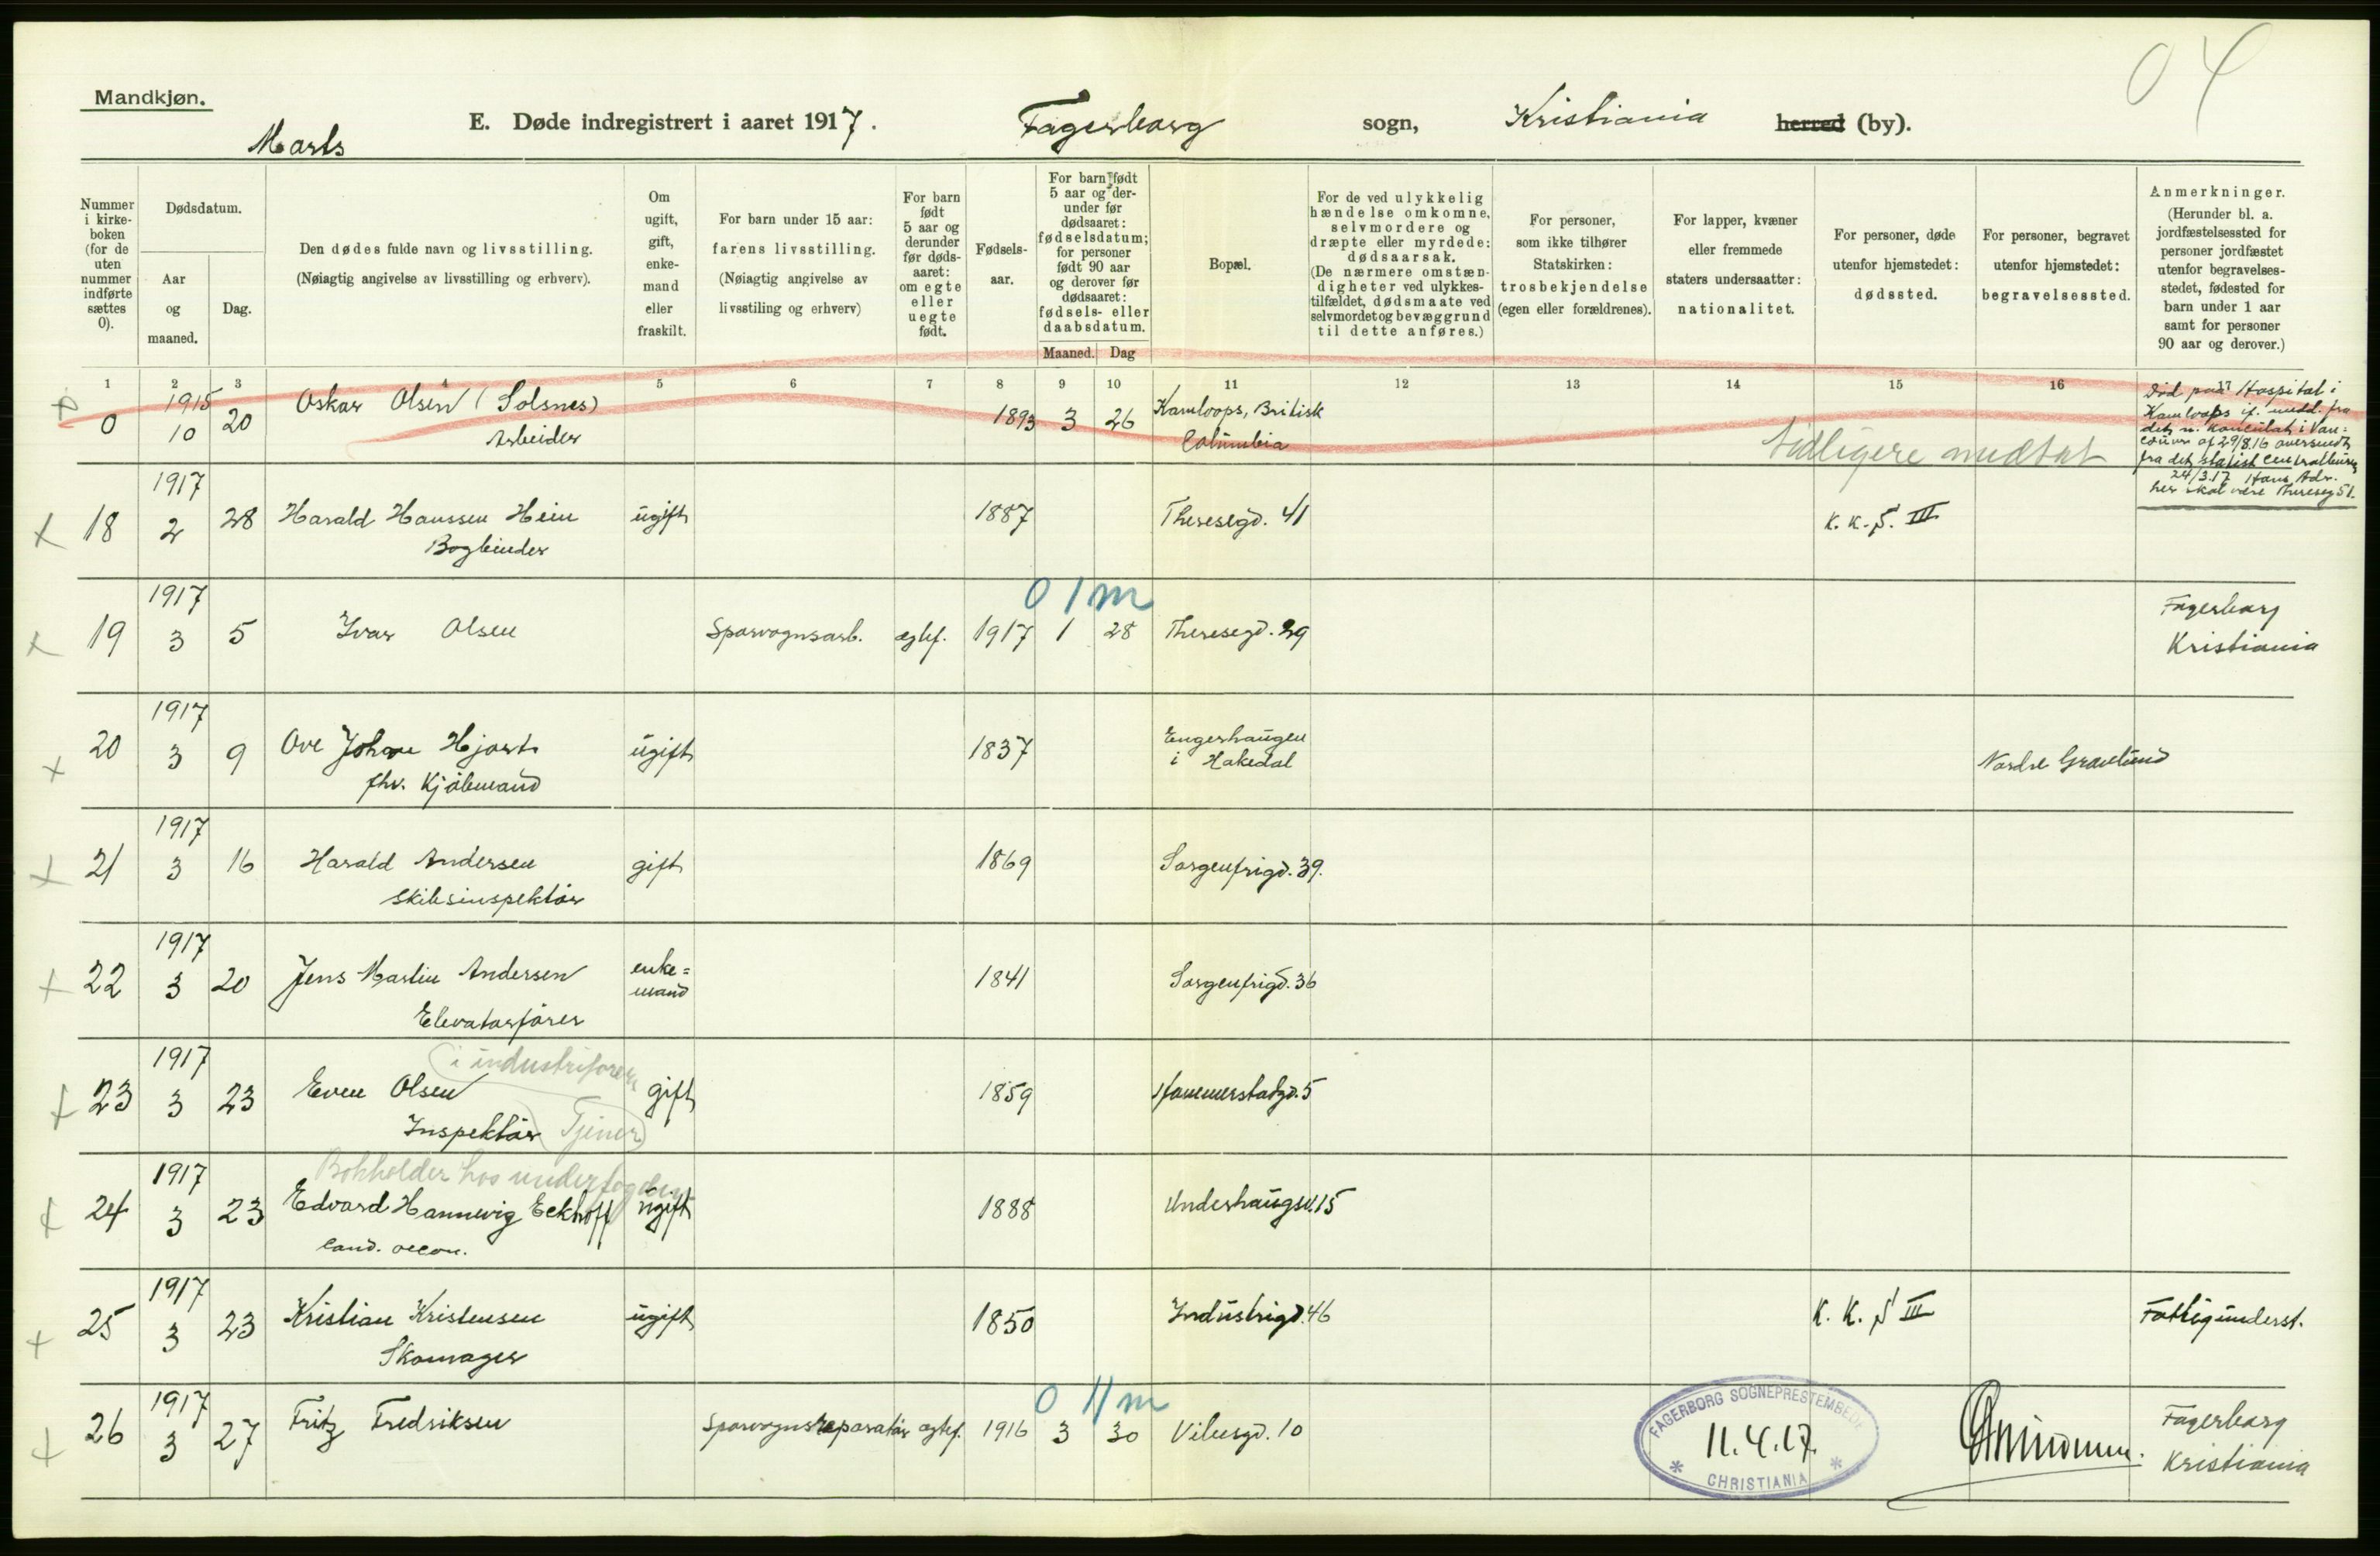 04
Mandkjøn.
Marts
E. Døde indregistrert i aaret 1917.
Fagerborg sogn, Kristiania herred (by).
Nummer i kirkeboken (for de uten nummer indførte sættes 0).
Dødsdatum.
Aar og maaned.
Dag.
Den dødes fulde navn og livsstilling.
(Nøiagtig angivelse av livsstilling og erhverv).
Om ugift, gift, enkemand eller fraskilt.
For barn under 15 aar: farens livsstilling.
(Nøiagtig angivelse av livsstiling og erhverv)
For barn født 5 aar og derunder før dødsaaret: om egte eller uegte født.
Fødselsaar.
For barn født 5 aar og derunder før dødsaaret: fødselsdatum; for personer født 90 aar og derover før dødsaaret: fødsels- eller daabsdatum.
Maaned. Dag
Bopæl.
For de ved ulykkelig hændelse omkomne, selvmordere og dræpte eller myrdede: dødsaarsak.
(De nærmere omstændigheter ved ulykkestilfældet, dødsmaate ved selvmordet og bevæggrund til dette anføres.)
For personer, som ikke tilhører Statskirken: trosbekjendelse (egen eller forældrenes).
For lapper, kvæner eller fremmede staters undersaatter: nationalitet.
For personer, døde utenfor hjemstedet: dødssted.
For personer, begravet utenfor hjemstedet: begravelsessted.
Anmerkninger.
(Herunder bl. a. jordfæstelsessted for personer jordfæstet utenfor begravelsesstedet, fødested for barn under 1 aar samt for personer 90 aar og derover.)
1 2 3 4 5 6 7 8 9 10 11 12 13 14 15 16 17
0 1915 10 20 Oskar Olsen (Solsnes) 1893 3 26 Kamloops, Britisk
Arbeider Columbia
tidligere medtat
Død paa Hospital i
Kamloops if. medd. fra
det n. konsulat i Van=
couver af 29/8.16 oversendt
fra det statist Centralbureau
24/3.17 Hans Adr.
her skal være Thereseg 51.
18 1917 2 28 Harald Hanssen Heim ugift 1887 Theresegd. 41 K. K. S. III
Bogbinder
0 1 m
19 1917 3 5 Ivar Olsen Sporvognsarb. egtef. 1917 1 28 Theresegd. 29 Fagerborg
Kristiania
20 1917 3 9 Ove Johan Hjort ugift 1837 Engerhaugen
i Hakedal Nordre Gravlund
fhv. Kjøbmand
21 1917 3 16 Harald Andersen gift 1869 Sorgenfrigd. 39.
Skibsinspektør
22 1917 3 20 Jens Martin Andersen enke=
mand 1841 Sorgenfrigd. 36
Elevatorfører
(i industriforen
23 1917 3 23 Even Olsen gift 1859 Hammerstadgd. 5
Inspektør (Tjener)
Bokholder hos underfogden
24 1917 3 23 Edvard Hannevig Eckhoff ugift 1888 Underhaugsv. 15
Cand. oecon.
25 1917 3 23 Kristian Kristensen ugift 1850 Industrigd. 46 K. K. S III Fattigunderst.
Skomager
0 11 m
26 1917 3 27 Fritz Fredriksen Sporvognsreparatør egtef. 1916 3 30 Vibesgd. 10 Fagerborg
Kristiania
FAGERBORG SOGNEPRESTEMBEDE
11.4.17.
* CHRISTIANIA *